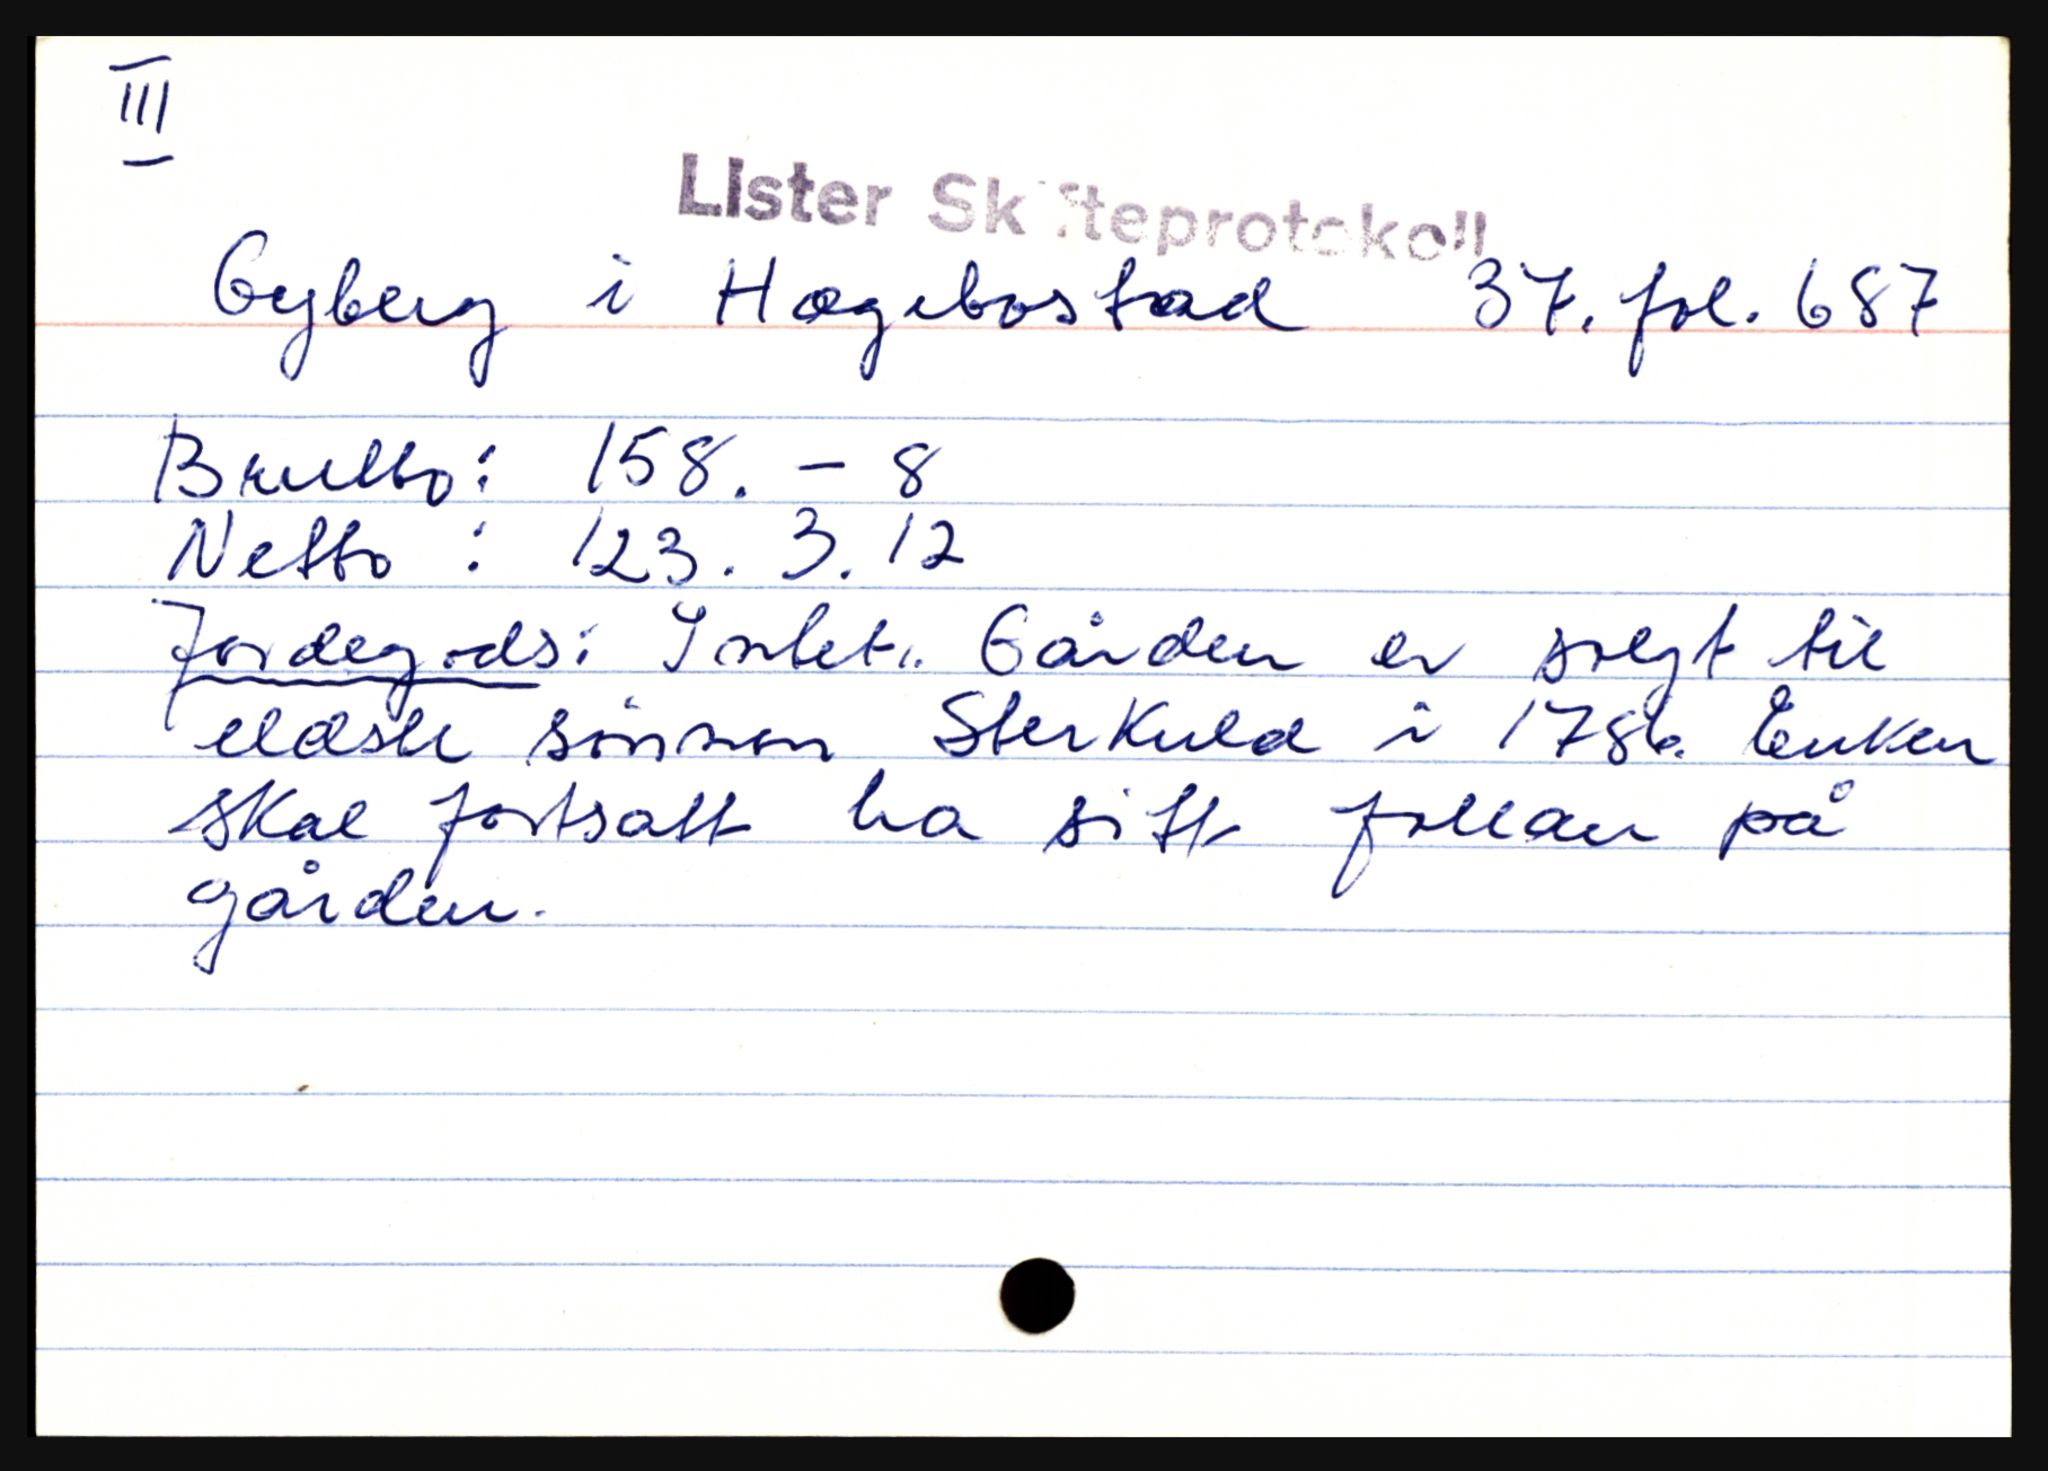 III
Lister Skifteprotokoll
Gyberg i Hægebostad 37. fol. 687
Brutto: 158. – 8
Netto : 123. 3. 12
Jordegods: Intet. Gården er solgt til
eldste sønnen Sterkuld i 1786. Enken
skal fortsatt ha sitt follau på
gården.